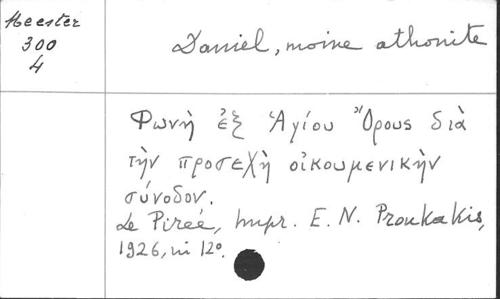 Meester
300
4
Daniel, moine athonite
Φωνὴ ἐξ Ἁγίου Ὄρους διὰ
τὴν προσεχῆ οἰκουμενικὴν
σύνοδον.
Le Pirée, Impr. E. N. Proukakis,
1926, in 12º.